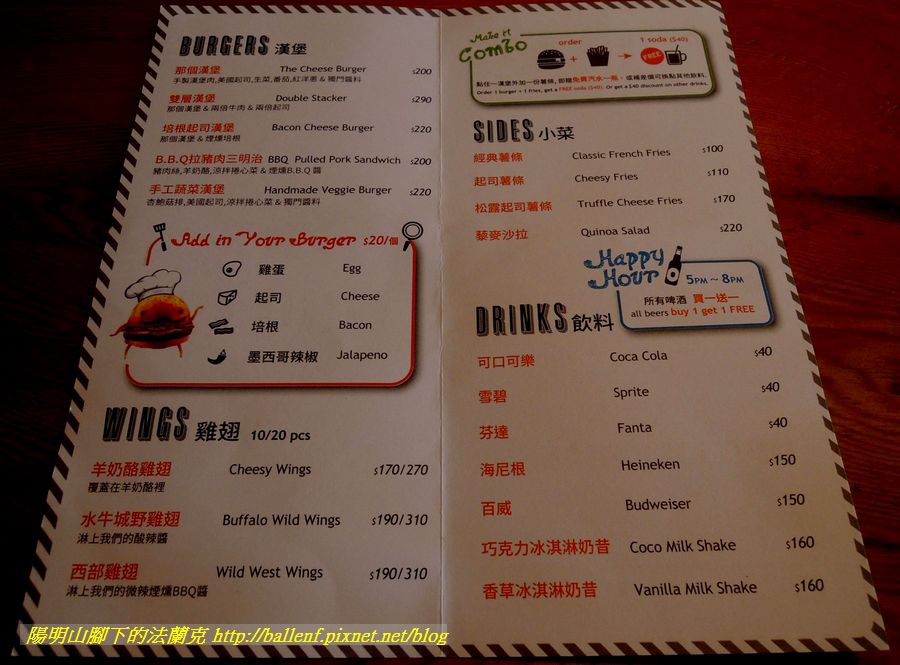 BURGERS 漢堡
那個漢堡 The Cheese Burger $200
手製漢堡肉,美國起司,生菜,番茄,紅洋蔥 & 獨門醬料
雙層漢堡 Double Stacker $290
那個漢堡 & 兩倍牛肉 & 兩倍起司
培根起司漢堡 Bacon Cheese Burger $220
那個漢堡 & 煙燻培根
B.B.Q拉豬肉三明治 BBQ Pulled Pork Sandwich $200
豬肉絲,羊奶酪,涼拌捲心菜 & 煙燻B.B.Q 醬
手工蔬菜漢堡 Handmade Veggie Burger $220
杏鮑菇排,美國起司,涼拌捲心菜 & 獨門醬料
Add in Your Burger $20/個
雞蛋 Egg
起司 Cheese
培根 Bacon
墨西哥辣椒 Jalapeno
WINGS 雞翅 10/20 pcs
羊奶酪雞翅 Cheesy Wings $170/270
覆蓋在羊奶酪裡
水牛城野雞翅 Buffalo Wild Wings $190/310
淋上我們的酸辣醬
西部雞翅 Wild West Wings $190/310
淋上我們的微辣煙燻BBQ醬
Make it Combo
order 1 soda ($40)
FREE
點任一漢堡外加一份薯條, 即贈免費汽水一瓶。或補差價可換點其他飲料。
Order 1 burger + 1 fries, get a FREE soda ($40). Or get a $40 discount on other drinks.
SIDES 小菜
經典薯條 Classic French Fries $100
起司薯條 Cheesy Fries $110
松露起司薯條 Truffle Cheese Fries $170
藜麥沙拉 Quinoa Salad $220
Happy Hour 5PM ~ 8PM
所有啤酒 買一送一
all beers buy 1 get 1 FREE
DRINKS 飲料
可口可樂 Coca Cola $40
雪碧 Sprite $40
芬達 Fanta $40
海尼根 Heineken $150
百威 Budweiser $150
巧克力冰淇淋奶昔 Coco Milk Shake $160
香草冰淇淋奶昔 Vanilla Milk Shake $160
陽明山腳下的法蘭克 http://ballenf.pixnet.net/blog